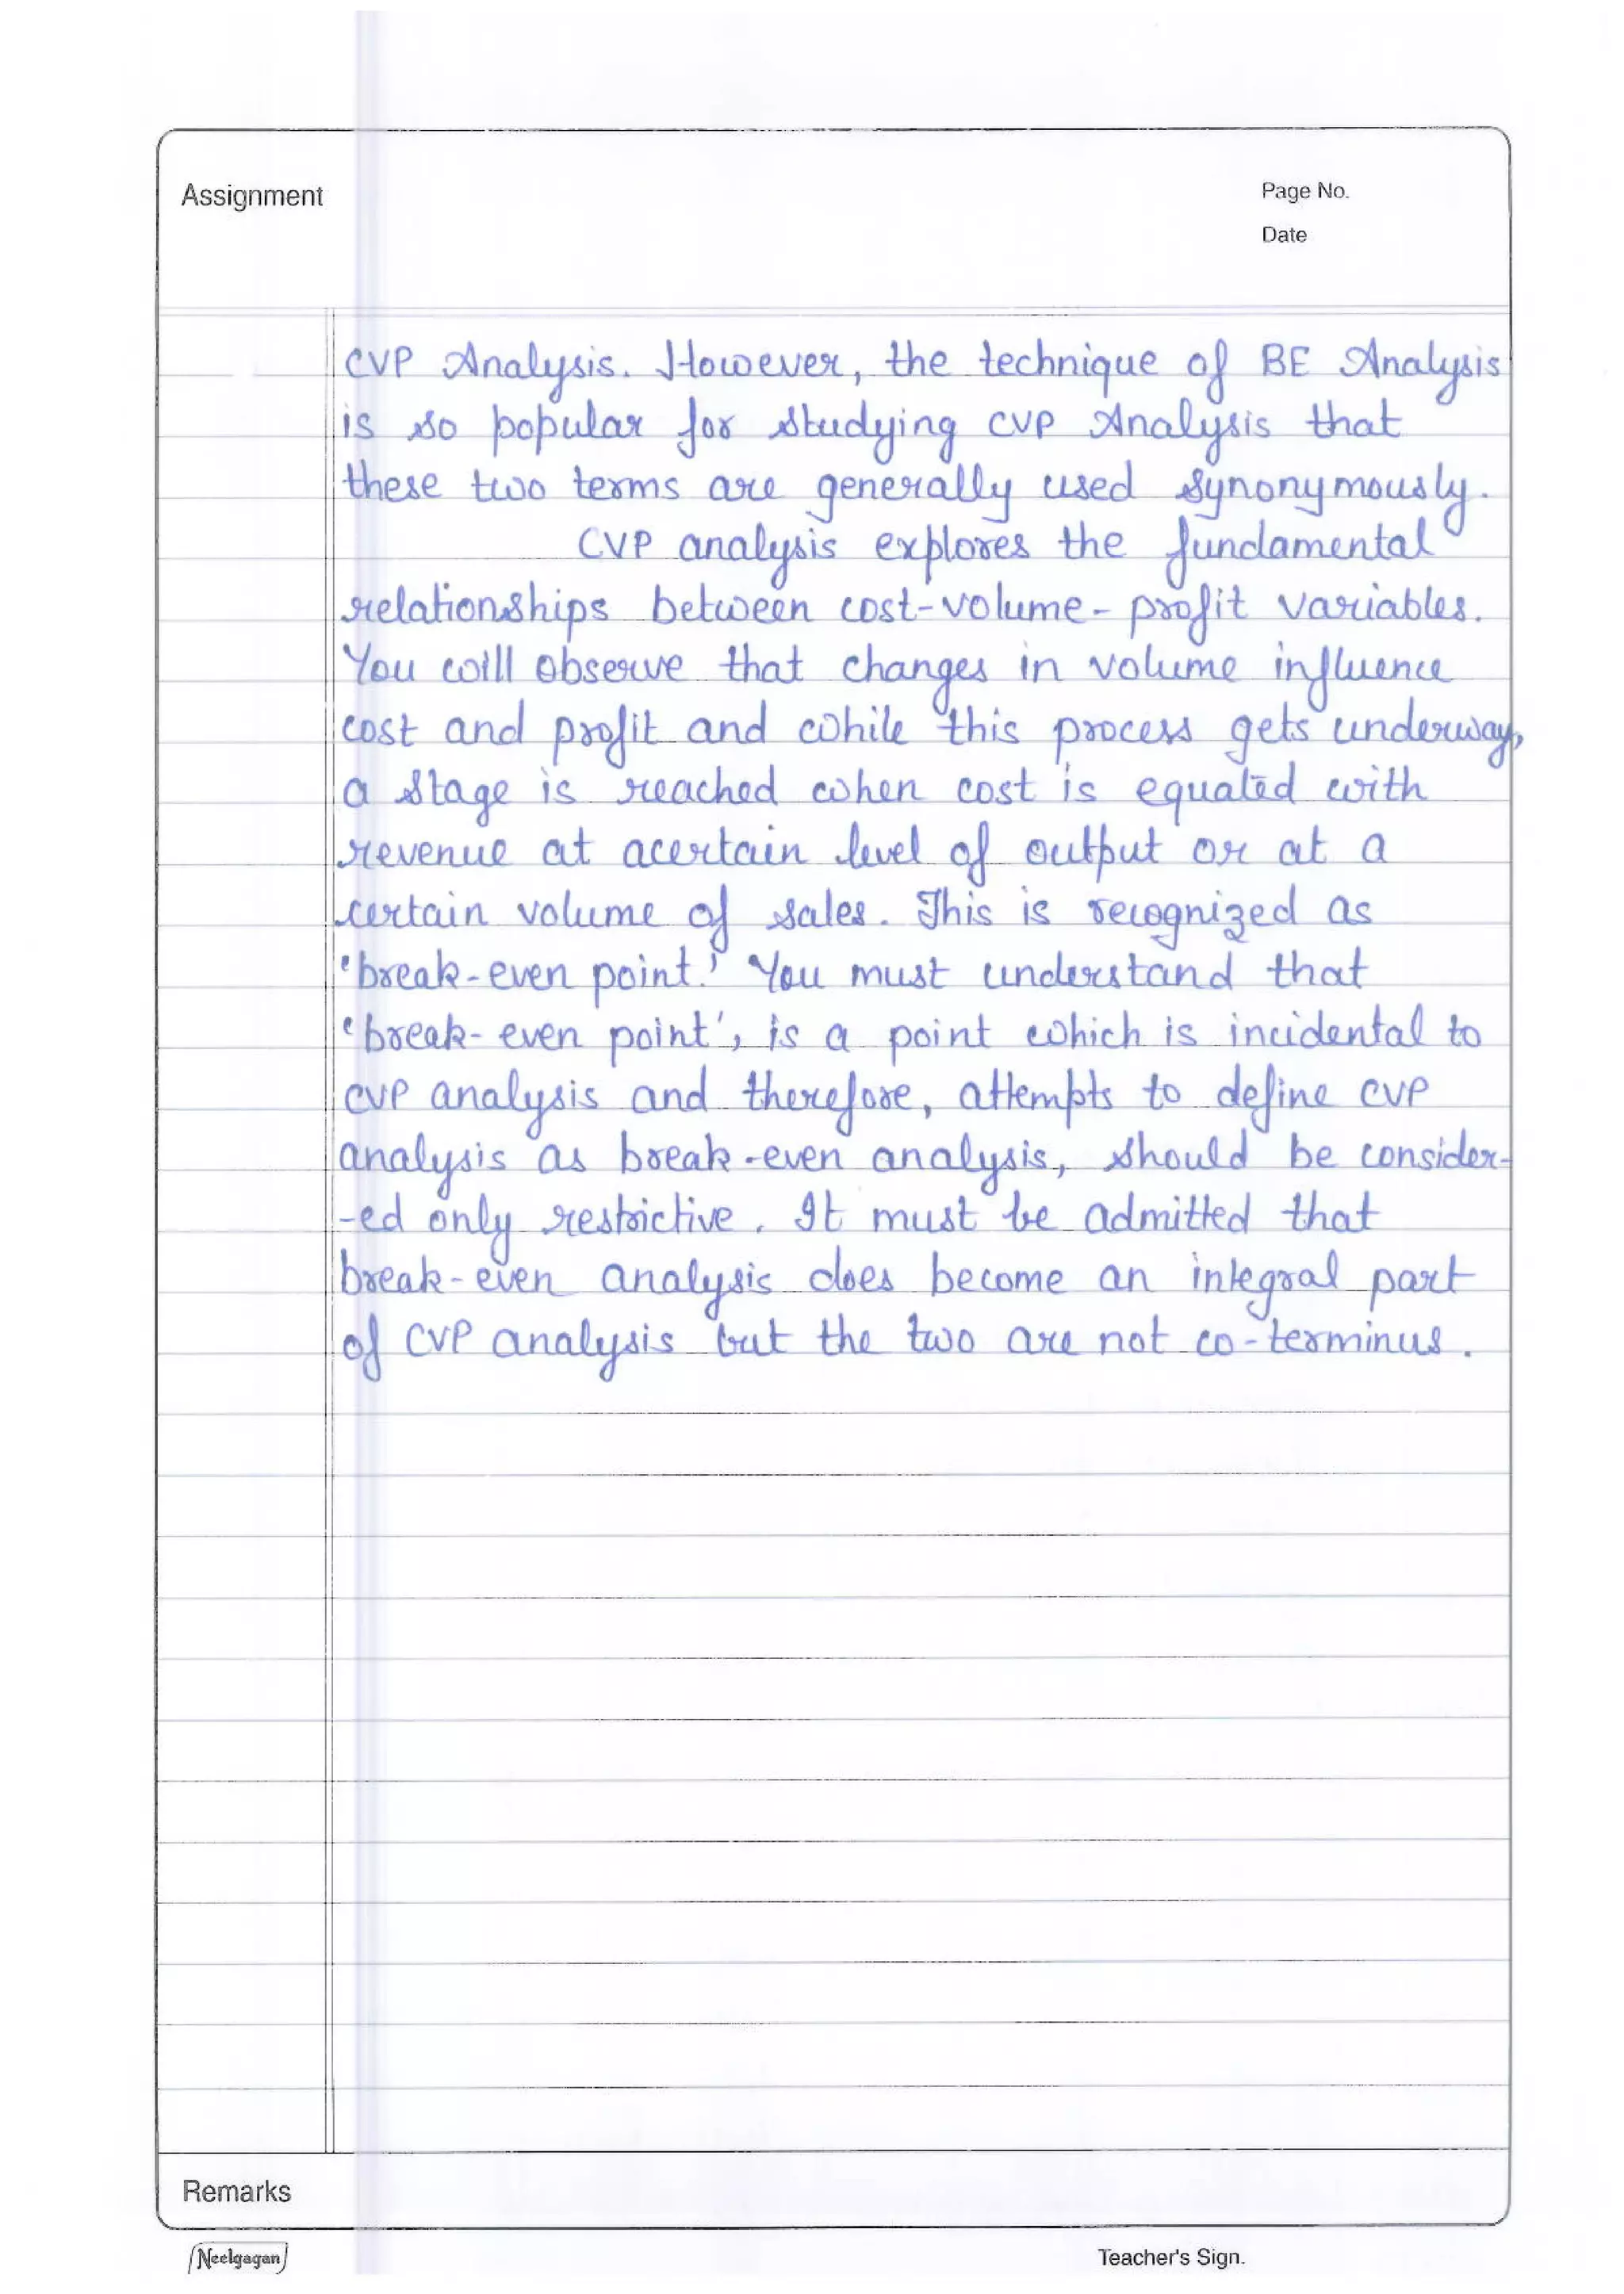 Assignment
Page No.
Date
CVP Analysis. However, the technique of BE Analysis
is so popular for studying CVP Analysis that
these two terms are generally used synonymously.
CVP analysis explores the fundamental
relationships between cost-volume-profit variables.
You will observe that changes in volume influence
cost and profit and while this process gets underway,
a stage is reached when cost is equated with
revenue at acertain level of output or at a
certain volume of sales. This is recognized as
'break-even point.' You must understand that
'break-even point', is a point which is incidental to
CVP analysis and therefore, attempts to define CVP
analysis as break-even analysis, should be consider-
-ed only restrictive. It must be admitted that
break-even analysis does become an integral part
of CVP analysis but the two are not co-terminus.
Remarks
Neelgagan
Teacher's Sign.